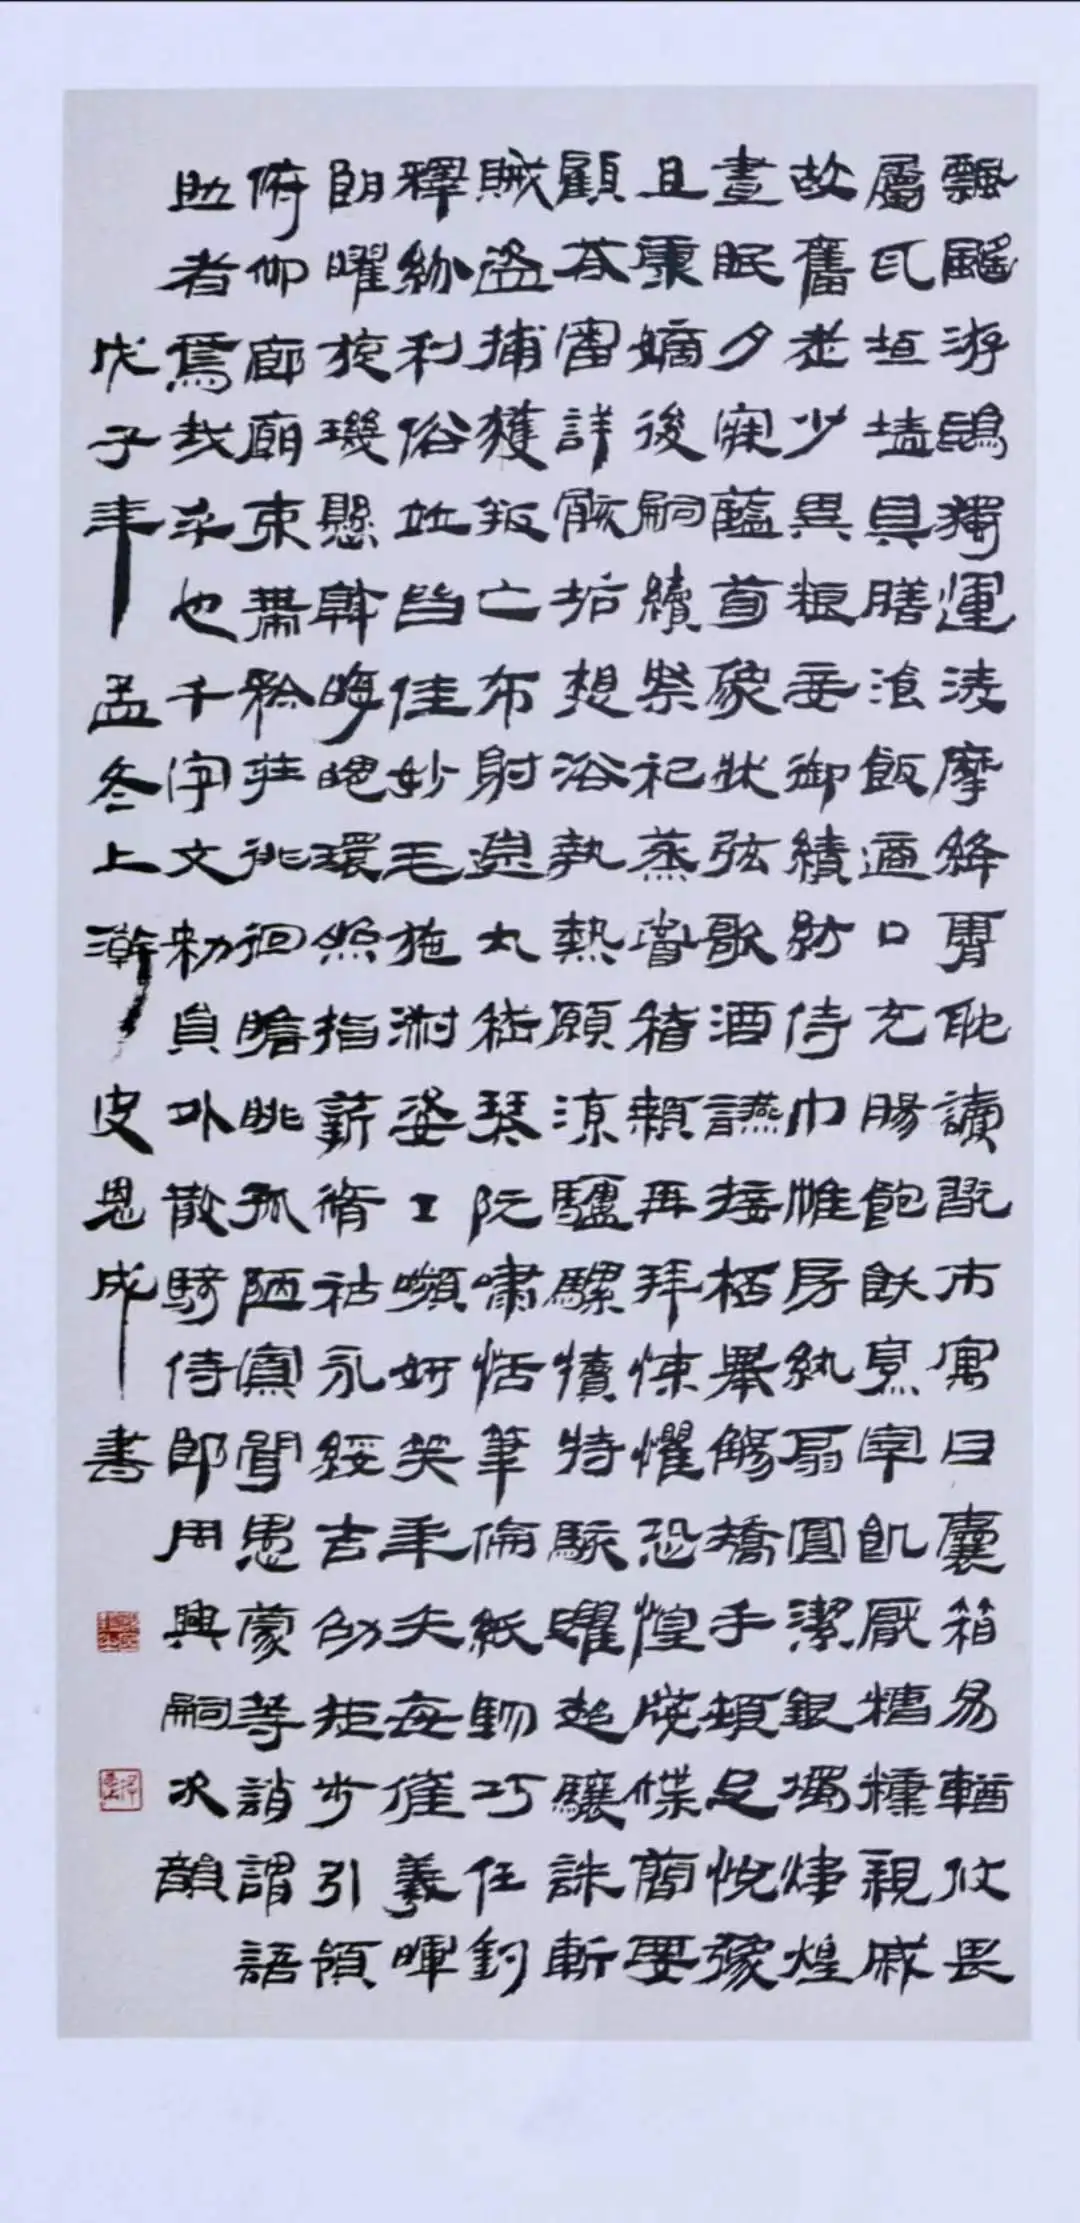 飄颻游鵾獨運凌摩絳霄耽讀翫市寓目囊箱易輶攸畏
屬耳垣墻具膳湌飯適口充腸飽飫烹宰飢厭糟糠親戚
故舊老少異粮妾御績紡侍巾帷房紈扇圓潔銀燭煒煌
晝眠夕寐藍筍象牀弦歌酒讌接桮舉觴矯手頓足悅豫
且康嫡後嗣續祭祀蒸嘗稽顙再拜悚懼恐惶牋牒簡要
顧荅審詳骸垢想浴執熱願涼驢騾犢特駭躍超驤誅斬
賊盜捕獲叛亡布射遼丸嵇琴阮嘯恬筆倫紙鈞巧任釣
釋紛利俗並皆佳妙毛施淑姿工嚬妍笑年矢每催羲暉
朗曜旋璣懸斡晦魄環照指薪脩祜永綏吉劭矩步引領
俯仰廊廟束帶矜莊徘徊瞻眺孤陋寡聞愚蒙等誚謂語
助者焉哉乎也千字文勑員外散騎侍郎周興嗣次韻
戊子年孟冬上澣皮恩成書